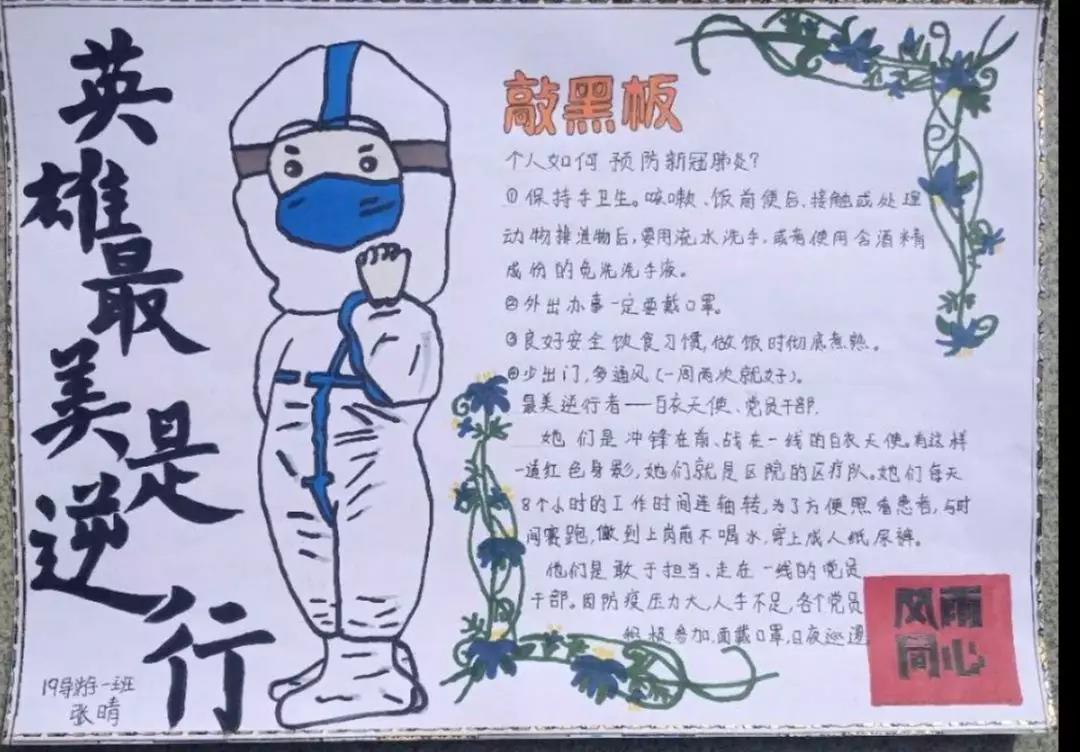 英雄最美是逆行
敲黑板
个人如何预防新冠肺炎?
①保持手卫生。咳嗽、饭前便后、接触或处理
动物排泄物后,要用流水洗手,或者使用含酒精
成份的免洗洗手液。
②外出办事一定要戴口罩。
③良好安全饮食习惯,做饭时彻底煮熟。
④少出门,多通风(一周两次就好)。
最美逆行者——白衣天使、党员干部.
她们是冲锋在前、战在一线的白衣天使。有这样
一道红色身影,她们就是医院的医疗队。她们每天
8个小时的工作时间连轴转,为了方便照看患者,与时
间赛跑,做到上岗前不喝水,穿上成人纸尿裤。
他们是敢于担当、走在一线的党员
干部。因防疫压力大,人手不足,各个党员
积极参加,面戴口罩,日夜巡逻
风雨
同心
19导游一班
张晴